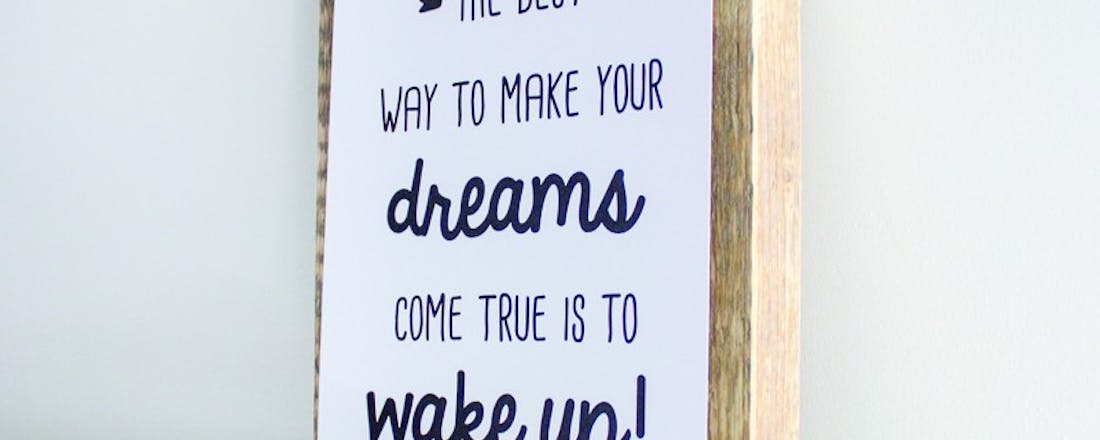 THE BEST
WAY TO MAKE YOUR
dreams
COME TRUE IS TO
wake up!